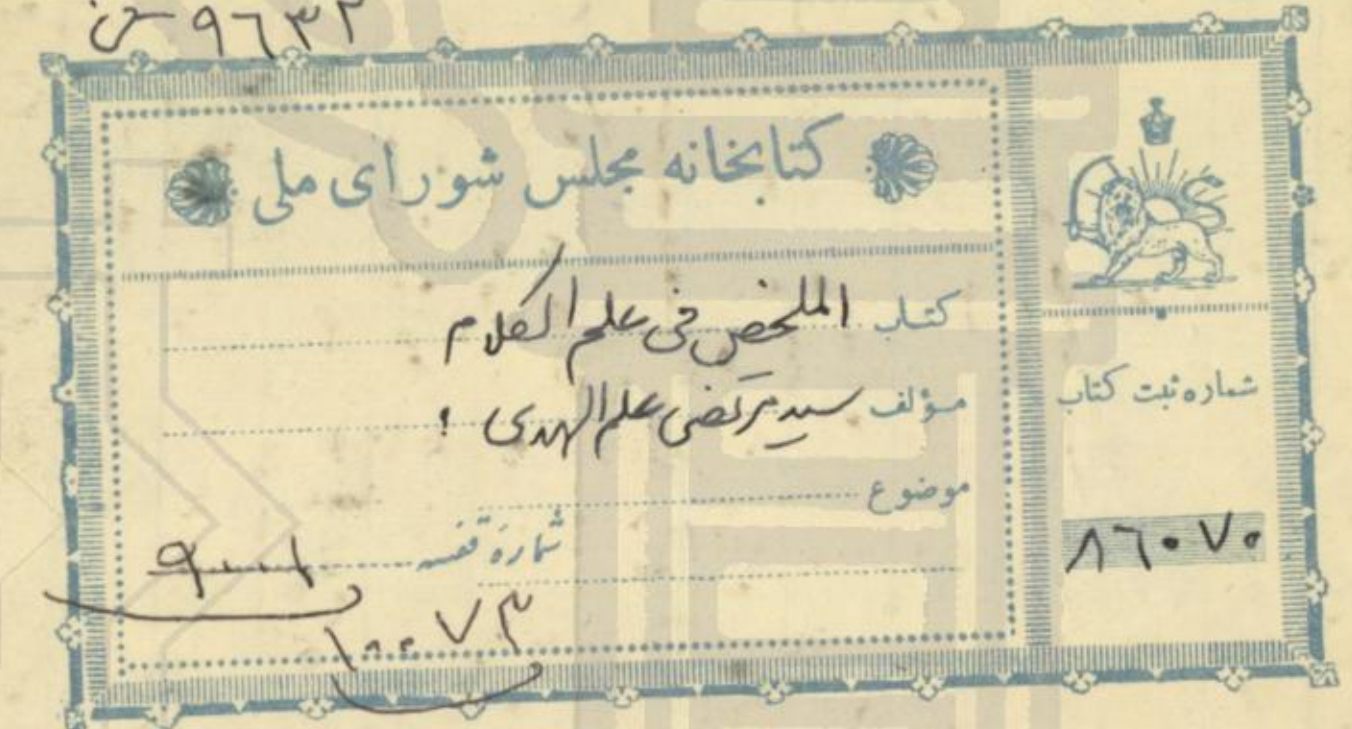 ۹۶۳۲
کتابخانه مجلس شورای ملی
کتاب الملخص فی علم الکلام
مؤلف سید مرتضی علم الهدی !
موضوع
شماره قفسه
۱۰۰۷۳
شماره ثبت کتاب
۸۶۰۷۰